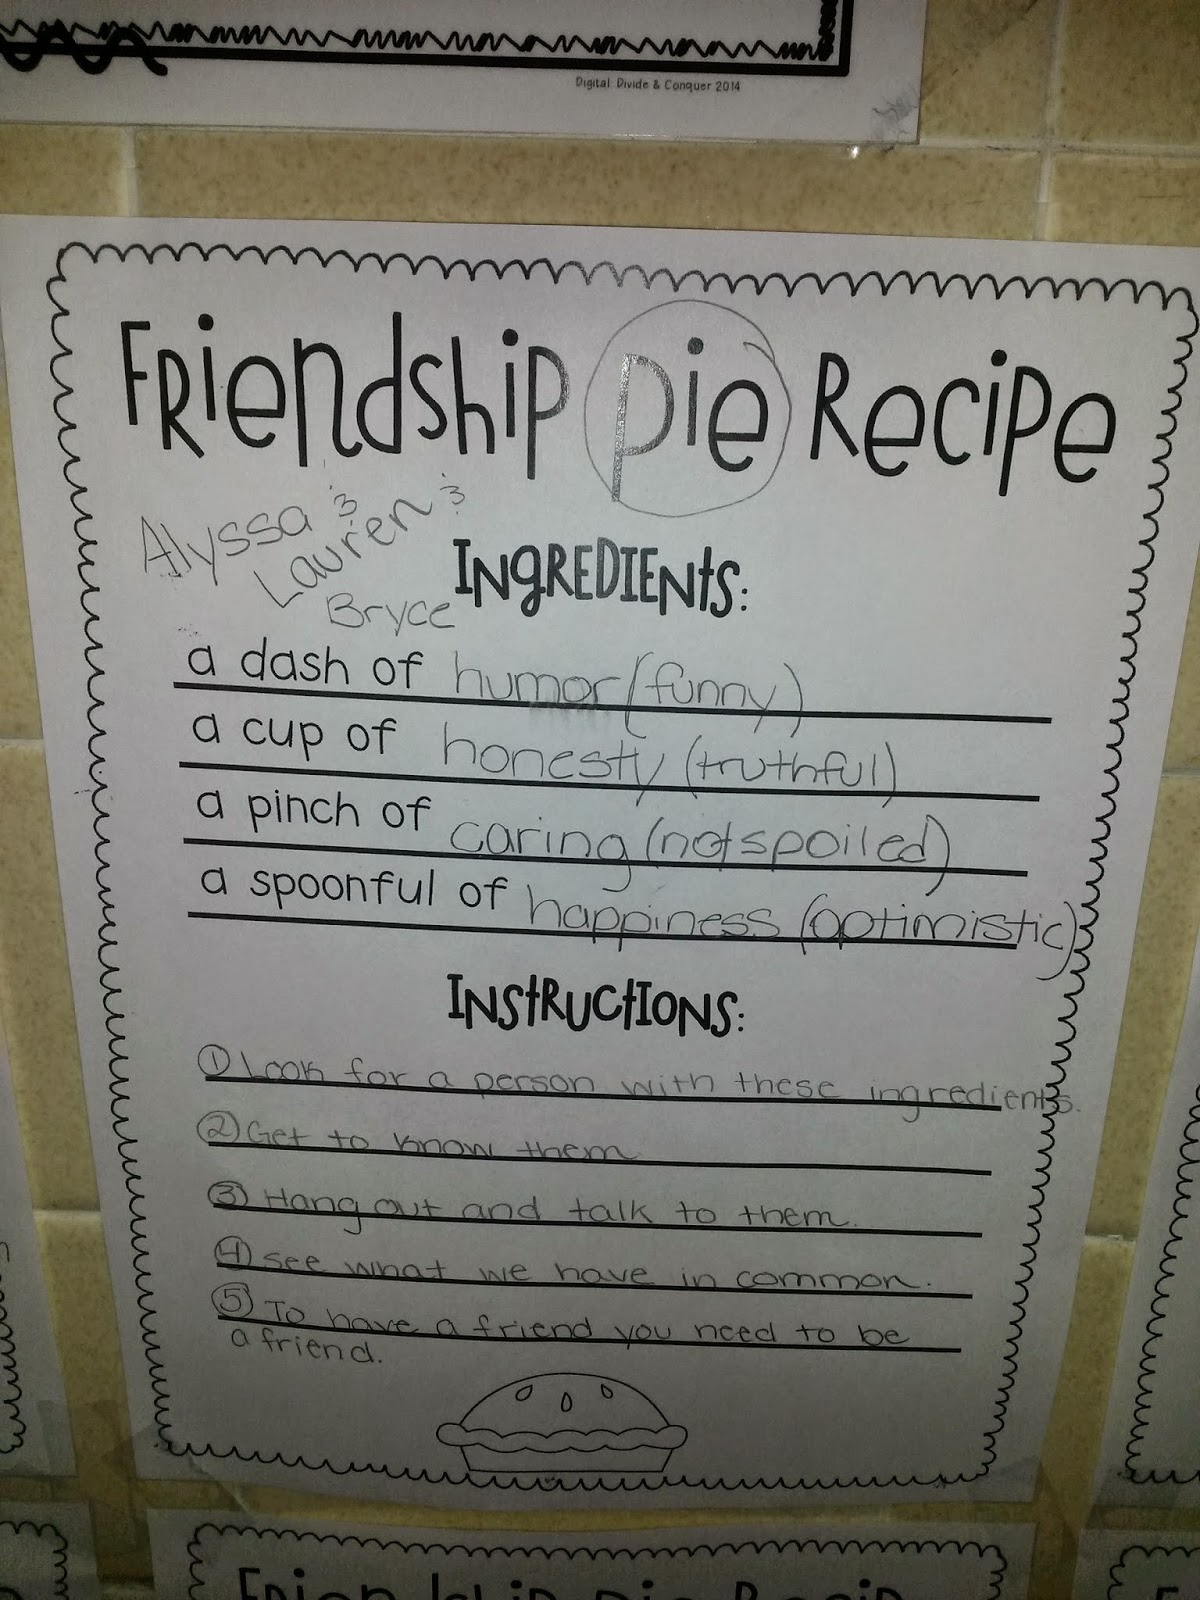 Digital Divide & Conquer 2014
Friendship Pie Recipe
Alyssa &
Lauren &
Bryce
Ingredients:
a dash of humor (funny)
a cup of honesty (truthful)
a pinch of caring (not spoiled)
a spoonful of happiness (optimistic)
Instructions:
① Look for a person with these ingredients.
② Get to know them
③ Hang out and talk to them.
④ see what we have in common.
⑤ To have a friend you need to be
a friend.
Friendship Pie Recipe